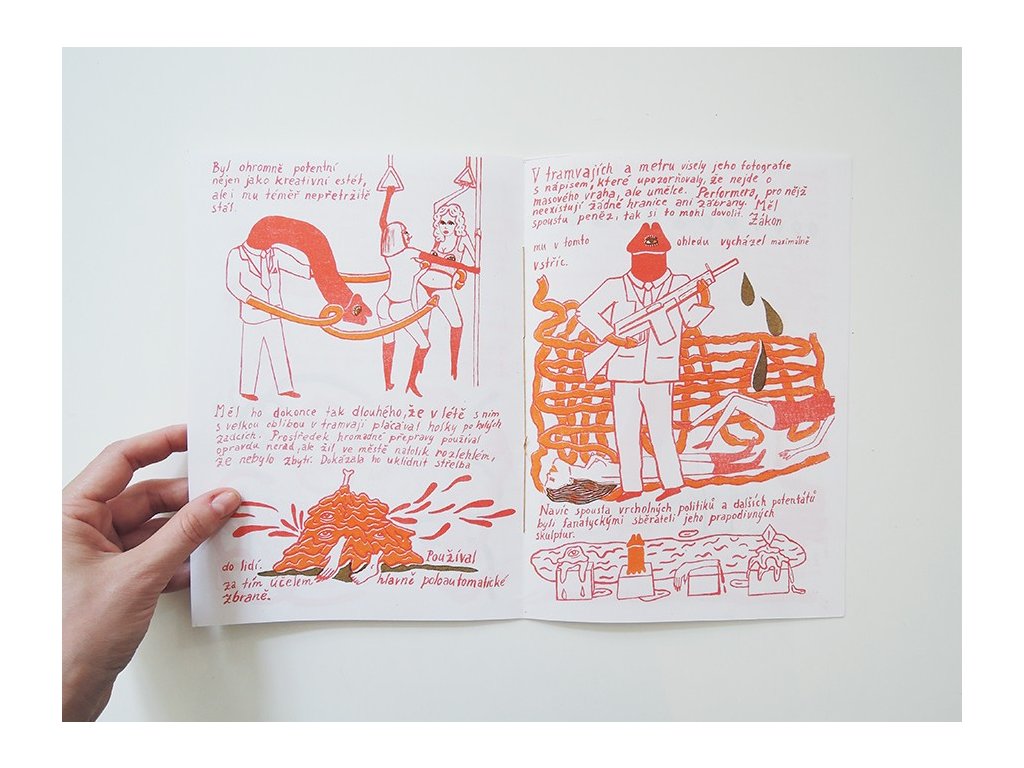 Byl ohromně potentní
nejen jako kreativní estét,
ale i mu téměř nepřetržitě
stál.
Měl ho dokonce tak dlouhého, že v létě s ním
s velkou oblibou v tramvaji plácával holky po holých
zadcích. Prostředek hromadné přepravy používal
opravdu nerad, ale žil ve městě natolik rozlehlém,
že nebylo zbytí. Dokázala ho uklidnit střelba
do lidí. Používal
za tím účelem hlavně poloautomatické
zbraně.
V tramvajích a metru visely jeho fotografie
s nápisem, které upozorňovaly, že nejde o
masového vraha, ale umělce. Performera, pro nějž
neexistují žádné hranice ani zábrany. Měl
spoustu peněz, tak si to mohl dovolit. Zákon
mu v tomto ohledu vycházel maximálně
vstříc.
Navíc spousta vrcholných politiků a dalších potentátů
byli fanatyckými sběrateli jeho prapodivných
skulptur.